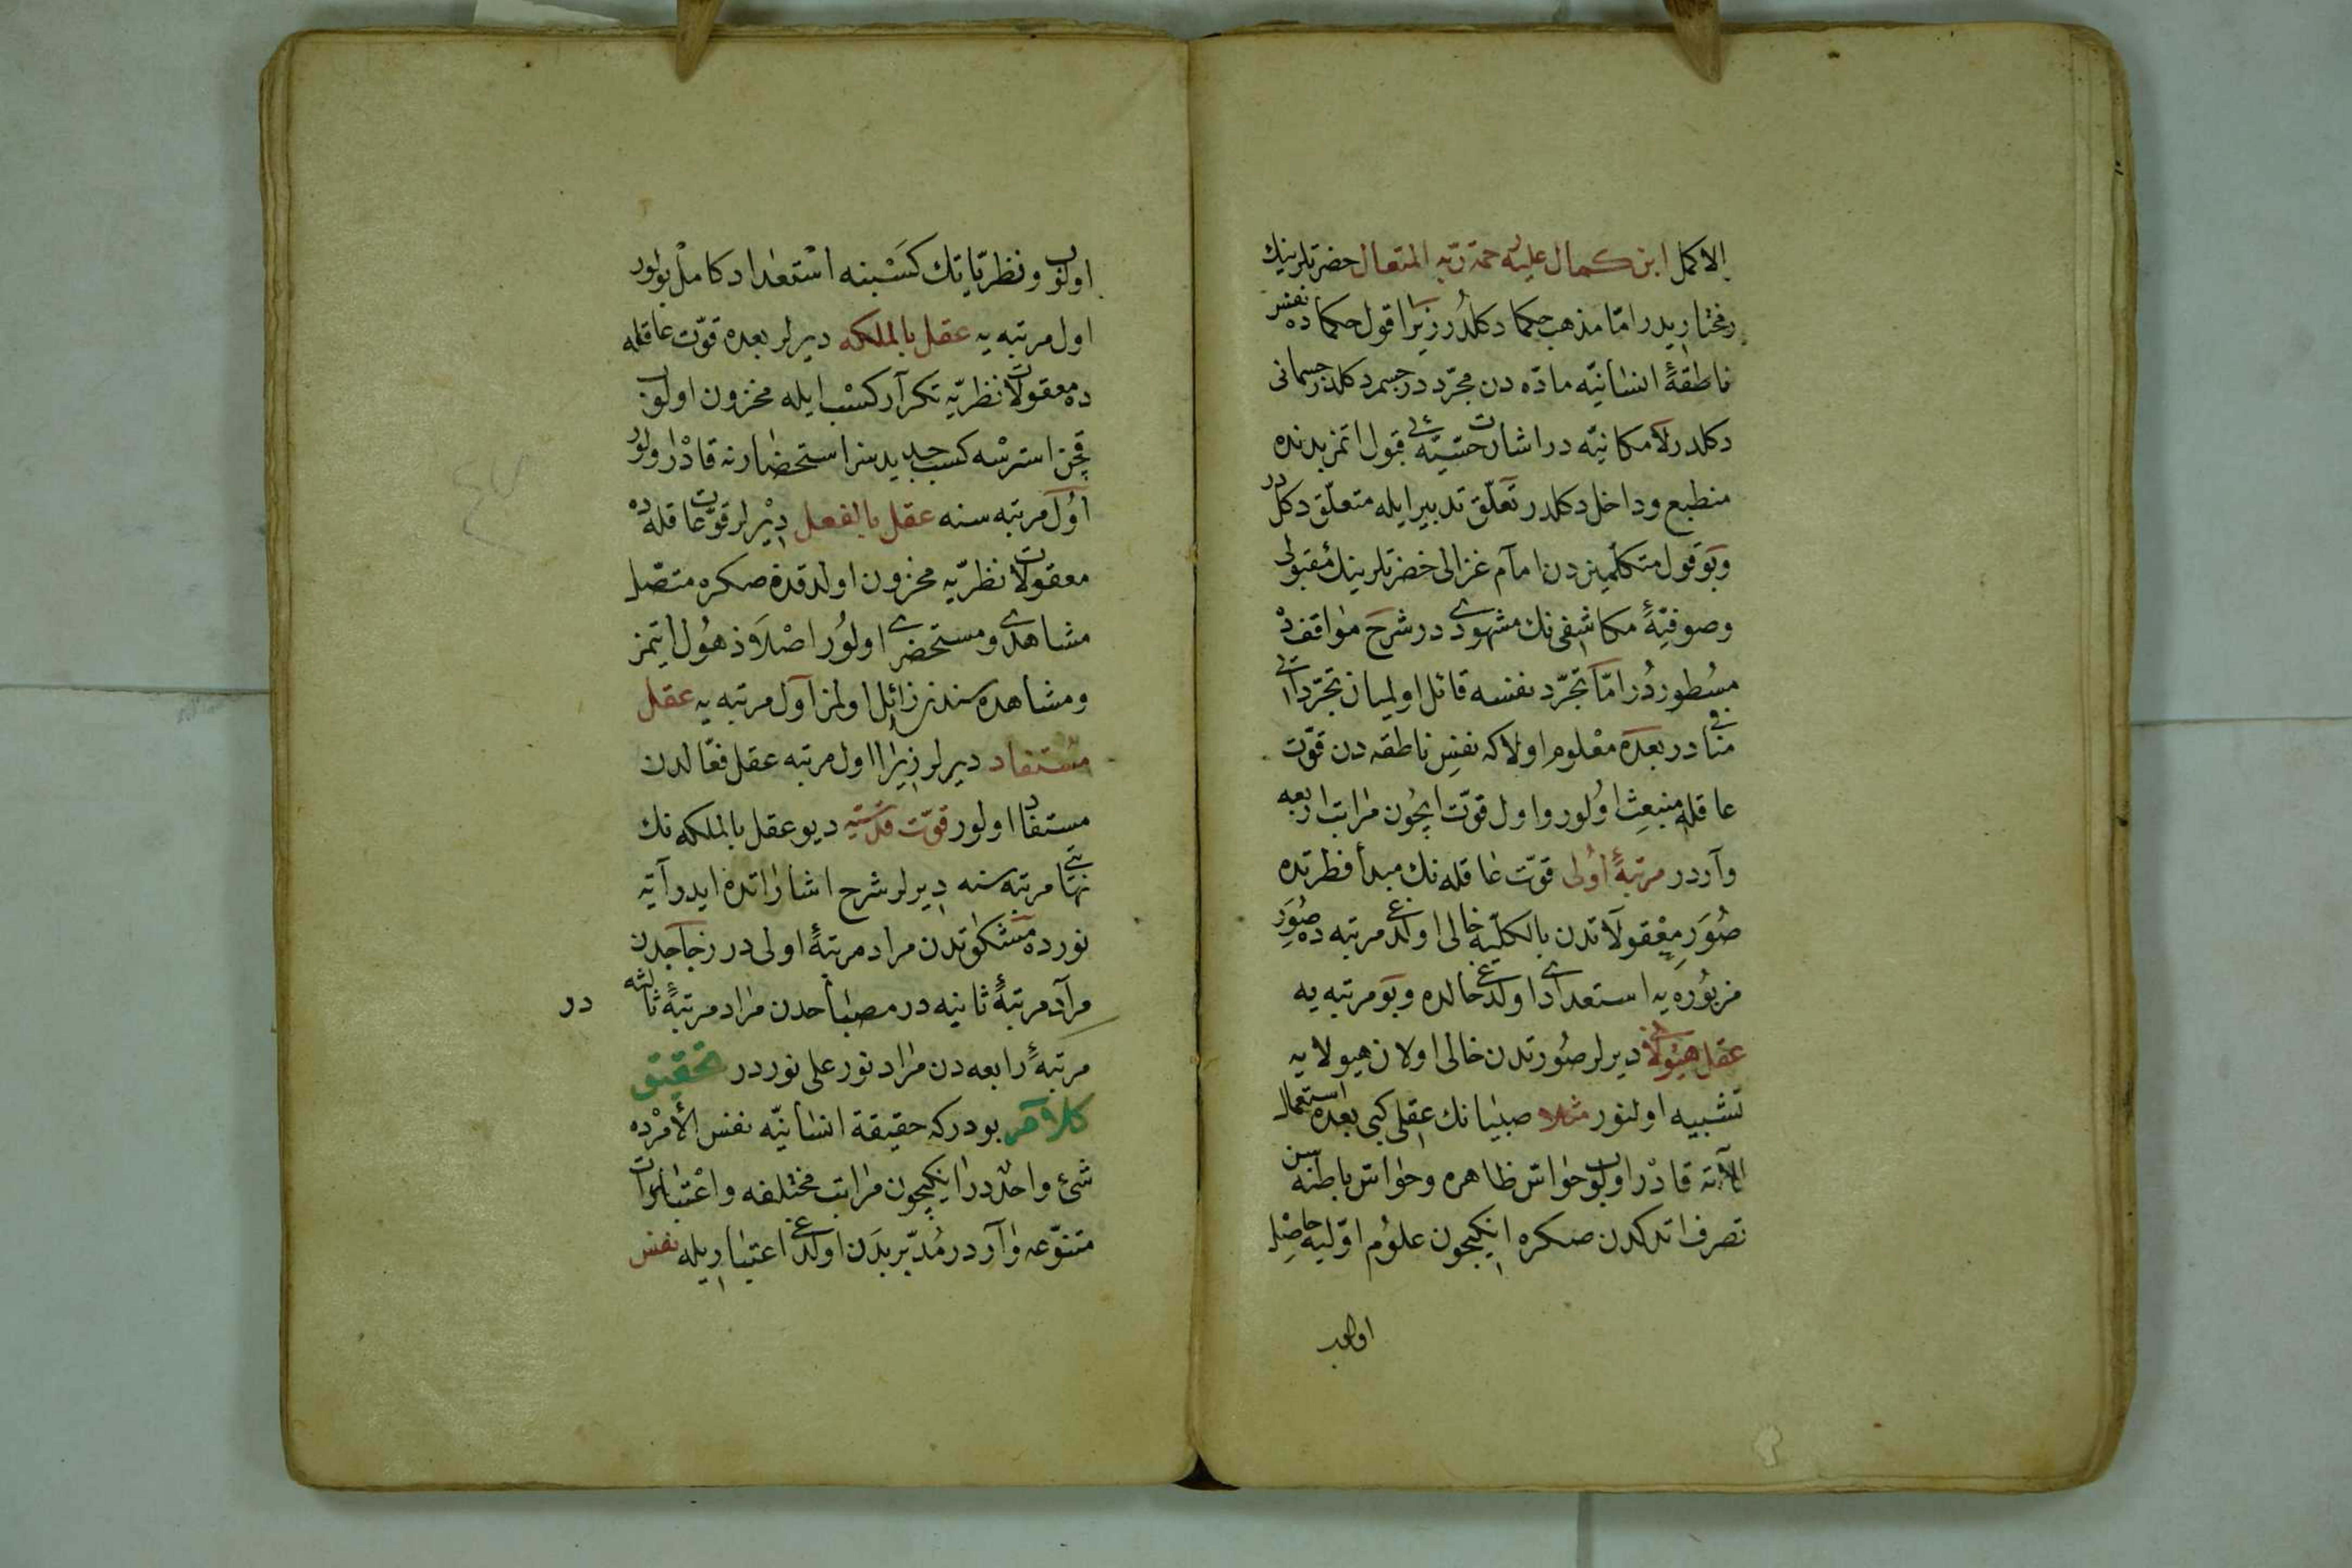 الاكمل ابن كمال عليه رحمة ربه المتعال حضرتلرينك
مختاريدر امّا مذهب حكما دكلدر زيرا قول حكما ده نفس
ناطقۀ انسانيّه مادّه دن مجرّد در جسم دكلدر جسمانى
دكلدر لامكانيّه در اشارت حسّيّه ئى قبول اتمز بدنده
منطبع وداخل دكلدر تعلّق تدبير ايله متعلّق دكلدر
وبو قول متكلميندن امام غزالى حضرتلرينك مقبولى
وصوفيّۀ مكاشفى نك مشهودى در شرح مواقفده
مسطوردر امّا تجرّد نفسه قائل اولميان تجرّد اتى
منافى در بعده معلوم اولاكه نفس ناطقه دن قوّت
عاقله منبعث اولور واول قوّت ايچون مراتب اربعه
واردر مرتبۀ اولى قوّت عاقله نك مبدأ فطرتده
صور معقولاتدن بالكليّه خالى اولدغى مرتبه ده صور
مزبوره يه استعدادى اولدغى حالده وبو مرتبه يه
عقل هيولانى ديرلر صورتدن خالى اولان هيولايه
تشبيه اولنور مثلا صبيانك عقلى كبى بعده استعمال
آلاته قادر اولوب حواسّ ظاهره وحواسّ باطنه سن
تصرف اتدكدن صكره انكيچون علوم اوّليه حاصل
اولوب
اولوب ونظريّاتك كسبنه استعداد كامل بولور
اول مرتبه يه عقل بالملكه ديرلر بعده قوّت عاقله
ده معقولات نظريّه تكرار كسب ايله مخزون اولوب
قچن استرسه كسب جديدسز استحضارنه قادر اولور
اول مرتبه سنه عقل بالفعل ديرلر قوّت عاقله ده
معقولات نظريّه مخزون اولدقدن صكره متصّل
مشاهدى ومستحضرى اولور اصلا ذهول ايتمز
ومشاهده سندن زائل اولمز اول مرتبه يه عقل
مستفاد ديرلر زيرا اول مرتبه عقل فعّالدن
مستفاد اولور قوّت قدسيّه ديو عقل بالملكه نك
نهايتى مرتبه سنه ديرلر شرح اشاراتده ايدر آيۀ
نورده مشكوتدن مراد مرتبۀ اولى در زجاجدن
مراد مرتبۀ ثانيه در مصباحدن مراد مرتبۀ ثالثه در
مرتبۀ رابعه دن مراد نور على نوردر تحقيق
كلام بودركه حقيقة انسانيّه نفس الأمرده
شئ واحددر انكيچون مراتب مختلفه واعتبارات
متنوّعه واردر مدبّر بدن اولدغى اعتباريله نفس